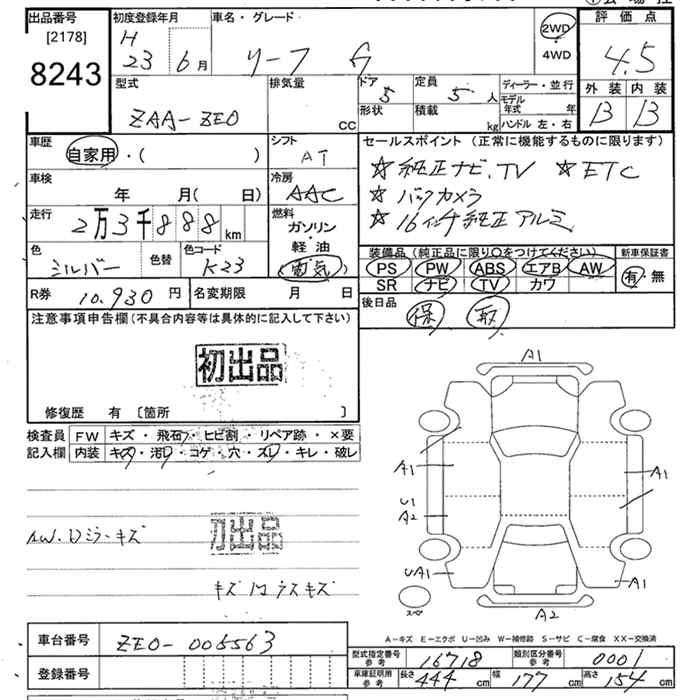 出品番号 [2178] 8243
初度登録年月 H 23年 6月
車名・グレード リーフ G
2WD・4WD
評価点 4.5
外装 B 内装 B
型式 ZAA-ZE0
排気量 CC
ドア 5 定員 5人
形状 積載 kg
ディーラー・並行
モデル年式 年
ハンドル 左・右
車歴 自家用・( )
シフト AT
セールスポイント (正常に機能するものに限ります)
☆ 純正ナビ、TV ☆ ETC
☆ バックカメラ
☆ 16インチ純正アルミ
車検 年 月( 日)
冷房 AAC
走行 2万3千888km
燃料 ガソリン・軽油 (電気)
色 シルバー 色替 色コード K23
装備品 (純正品に限り○をつけてください)
PS PW ABS エアB AW
SR ナビ TV カワ
新車保証書 有・無
R券 10,930円 名変期限 月 日
後日品 保 取
注意事項申告欄(不具合内容等は具体的に記入して下さい)
初出品
修復歴 有 〔箇所 〕
検査員記入欄
FW キズ・飛石・ヒビ割・リペア跡・×要
内装 キズ・汚れ・コゲ・穴・スレ・キレ・破レ
AW、Dミラーキズ
初出品
A1
A1
A1
U1
A2
UA1
A1
スペ
A2
A-キズ E-エクボ U-凹み W-補修跡 S-サビ C-腐食 XX-交換済
車台番号 ZE0-005563
登録番号
型式指定番号 参考 16718 類別区分番号 参考 0001
車庫証明用 参考 長さ 444cm 幅 177cm 高さ 154cm